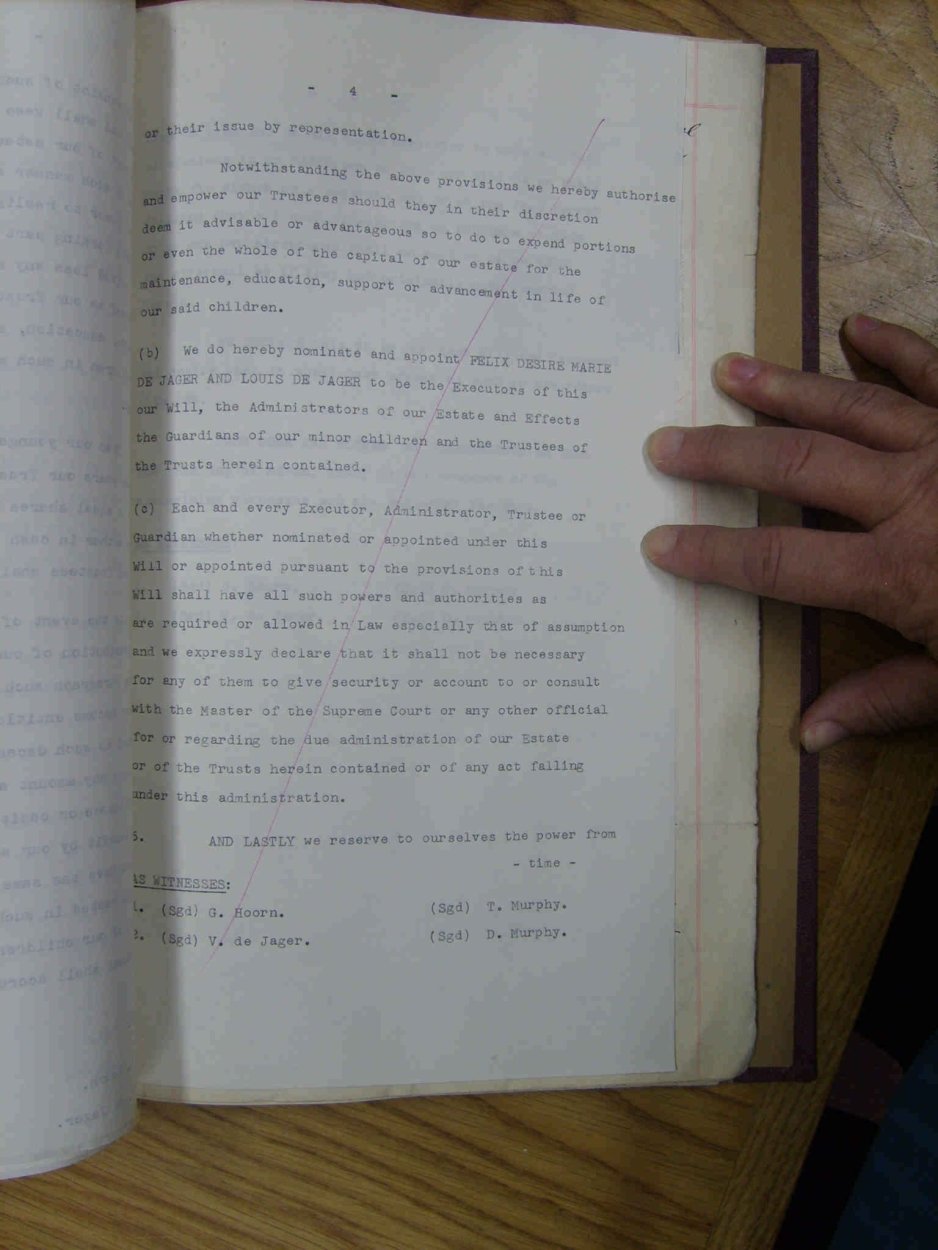 - 4 -
or their issue by representation.
Notwithstanding the above provisions we hereby authorise
and empower our Trustees should they in their discretion
deem it advisable or advantageous so to do to expend portions
or even the whole of the capital of our estate for the
maintenance, education, support or advancement in life of
our said children.
(b) We do hereby nominate and appoint FELIX DESIRE MARIE
DE JAGER AND LOUIS DE JAGER to be the Executors of this
our Will, the Administrators of our Estate and Effects
the Guardians of our minor children and the Trustees of
the Trusts herein contained.
(c) Each and every Executor, Administrator, Trustee or
Guardian whether nominated or appointed under this
Will or appointed pursuant to the provisions of this
Will shall have all such powers and authorities as
are required or allowed in Law especially that of assumption
and we expressly declare that it shall not be necessary
for any of them to give security or account to or consult
with the Master of the Supreme Court or any other official
for or regarding the due administration of our Estate
or of the Trusts herein contained or of any act falling
under this administration.
5. AND LASTLY we reserve to ourselves the power from
- time -
AS WITNESSES:
1. (Sgd) G. Hoorn. (Sgd) T. Murphy.
2. (Sgd) V. de Jager. (Sgd) D. Murphy.